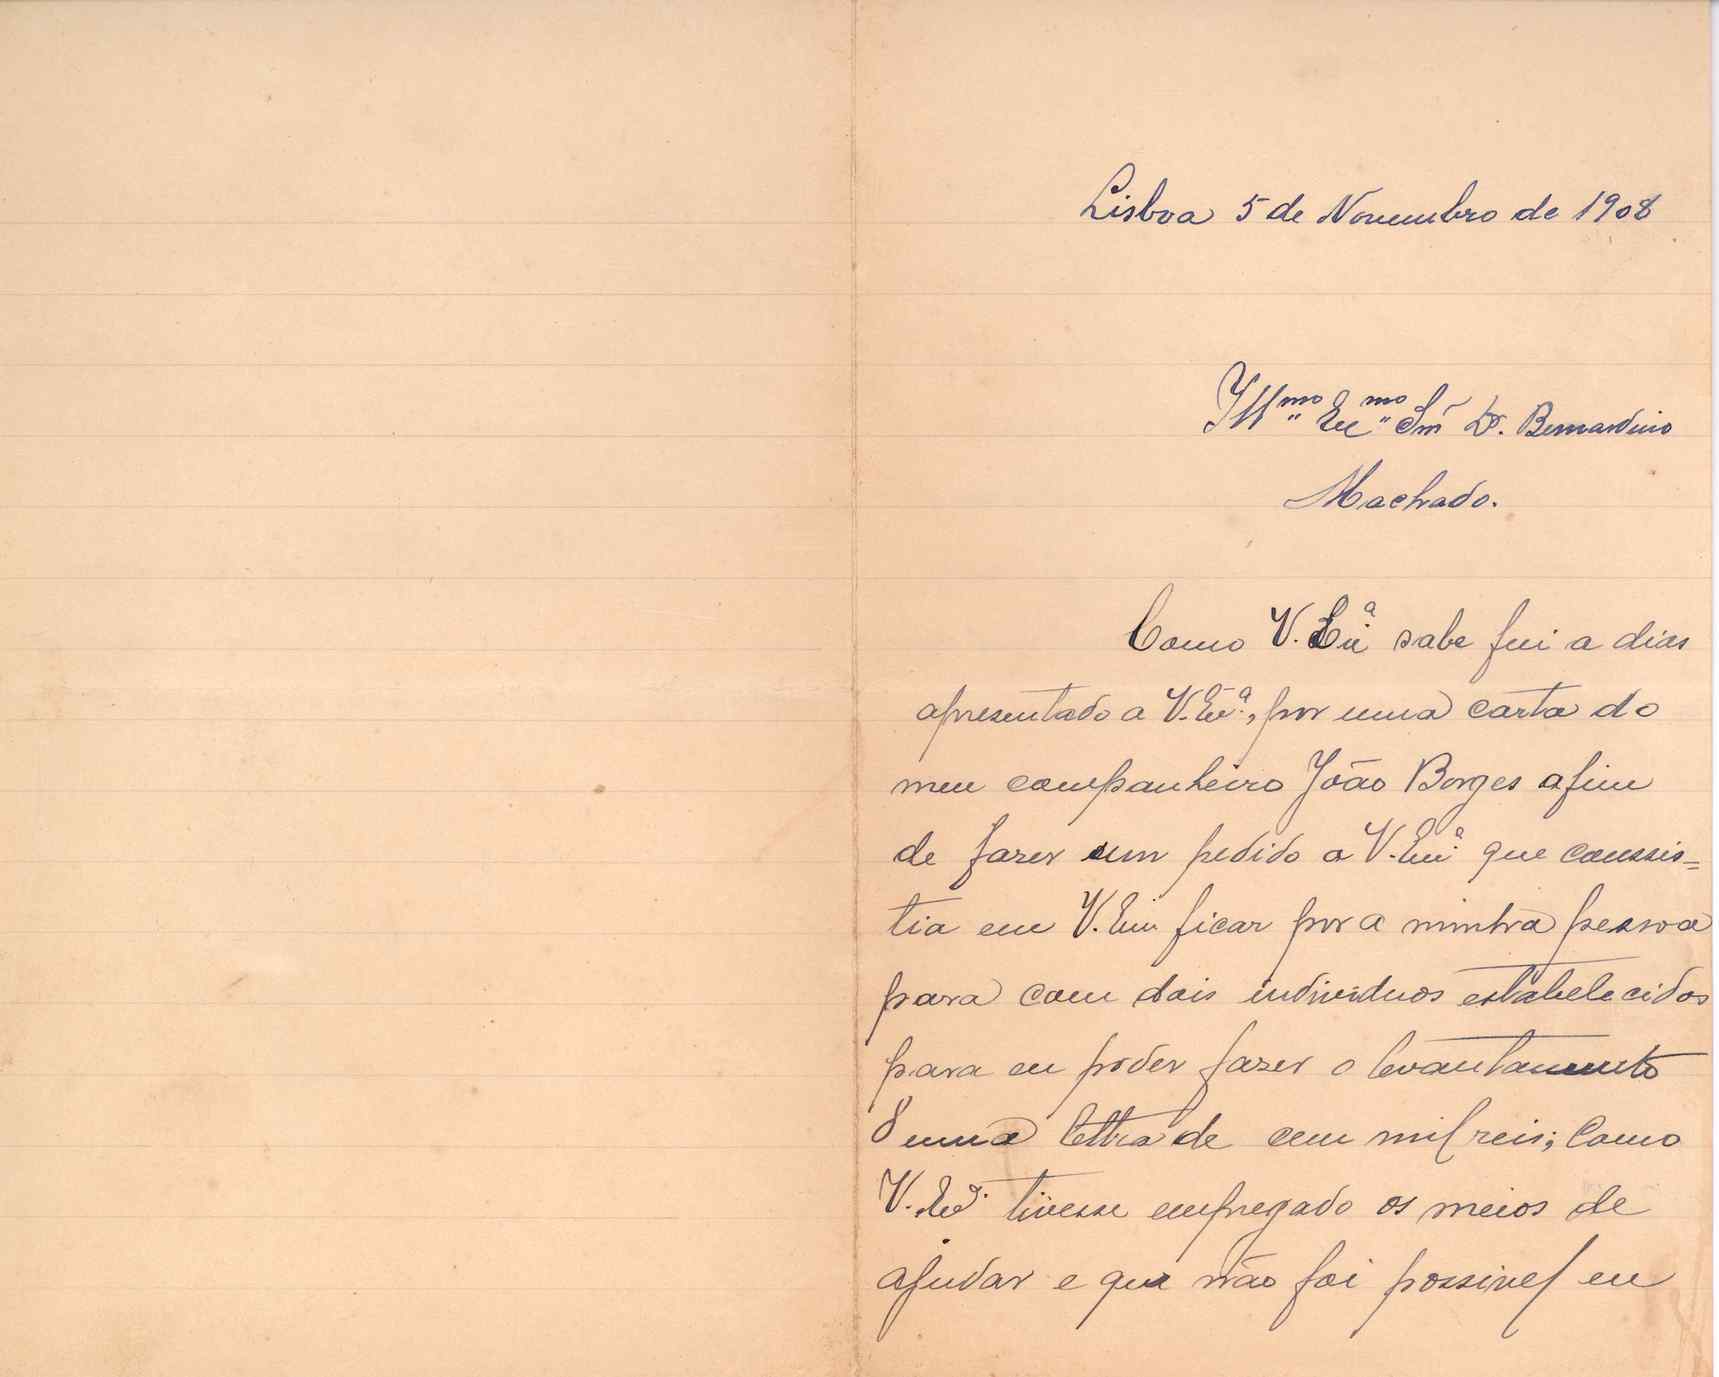 Lisboa 5 de Novembro de 1908
Illmo Exmo Snr Dr. Bernardino
Machado.
Como V. Exa sabe fui a dias
apresentado a V. Exa, por uma carta do
meu companheiro João Borges afim
de fazer um pedido a V. Exa que conssis=
tia em V. Exa ficar por a minha pessoa
para com dois individuos estabelecidos
para eu poder fazer o levantamento
d'uma lettra de cem mil reis; Como
V. Exa tivesse empregado os meios de
ajudar e que não foi possivel eu